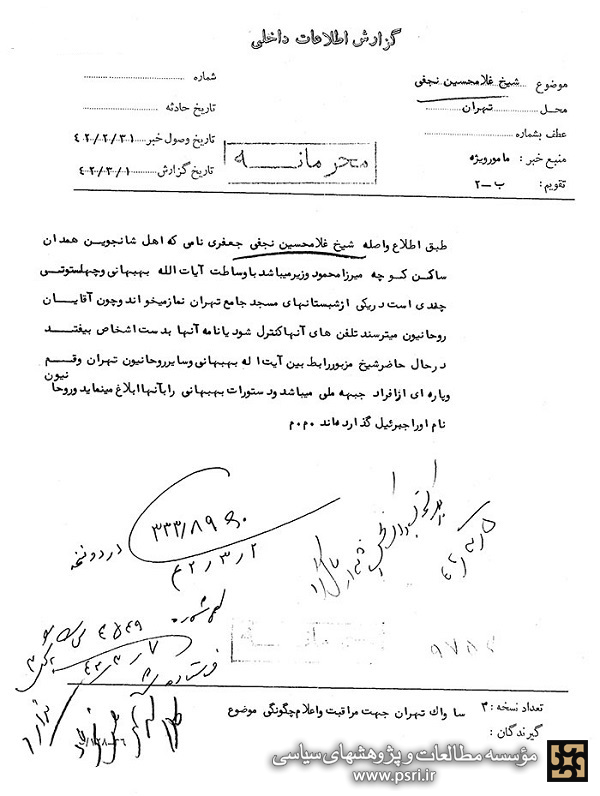 گزارش اطلاعات داخلی
موضوع شیخ غلامحسین نجفی
شماره
محل تهران
تاریخ حادثه
عطف بشماره
تاریخ وصول خبر ۴۲/۲/۳۱
منبع خبر : مامورویژه
تاریخ گزارش ۴۲/۳/۱
تقویم : ب-۲
محرمانه
طبق اطلاع واصله شیخ غلامحسین نجفی جعفری نامی که اهل شانجوین همدان
ساکن کوچه میرزامحمود وزیرمیباشد باوساطت آیات الله بهبهانی وچهلستونی
چندی است دریکی ازشبستانهای مسجد جامع تهران نمازمیخواند وچون آقایان
روحانیون میترسند تلفن های آنهاکنترل شود یانامه آنها بدست اشخاص بیفتد
درحال حاضرشیخ مزبوررابط بین آیت اله بهبهانی وسایرروحانیون تهران وقم
وپاره ای ازافراد جبهه ملی میباشد ودستورات بهبهانی رابآنهاابلاغ مینماید وروحا
نیون
نام اوراجبرئیل گذارده‌اند م۰م۰
۳۳۳/۸۹۶۰
در دو نسخه
۴۲ر۳ر۲
۹۷۸۶
تعداد نسخه : ۳
ساواک تهران جهت مراقبت واعلام چگونگی موضوع
گیرندگان :
مؤسسه مطالعات و پژوهشهای سیاسی
www.psri.ir